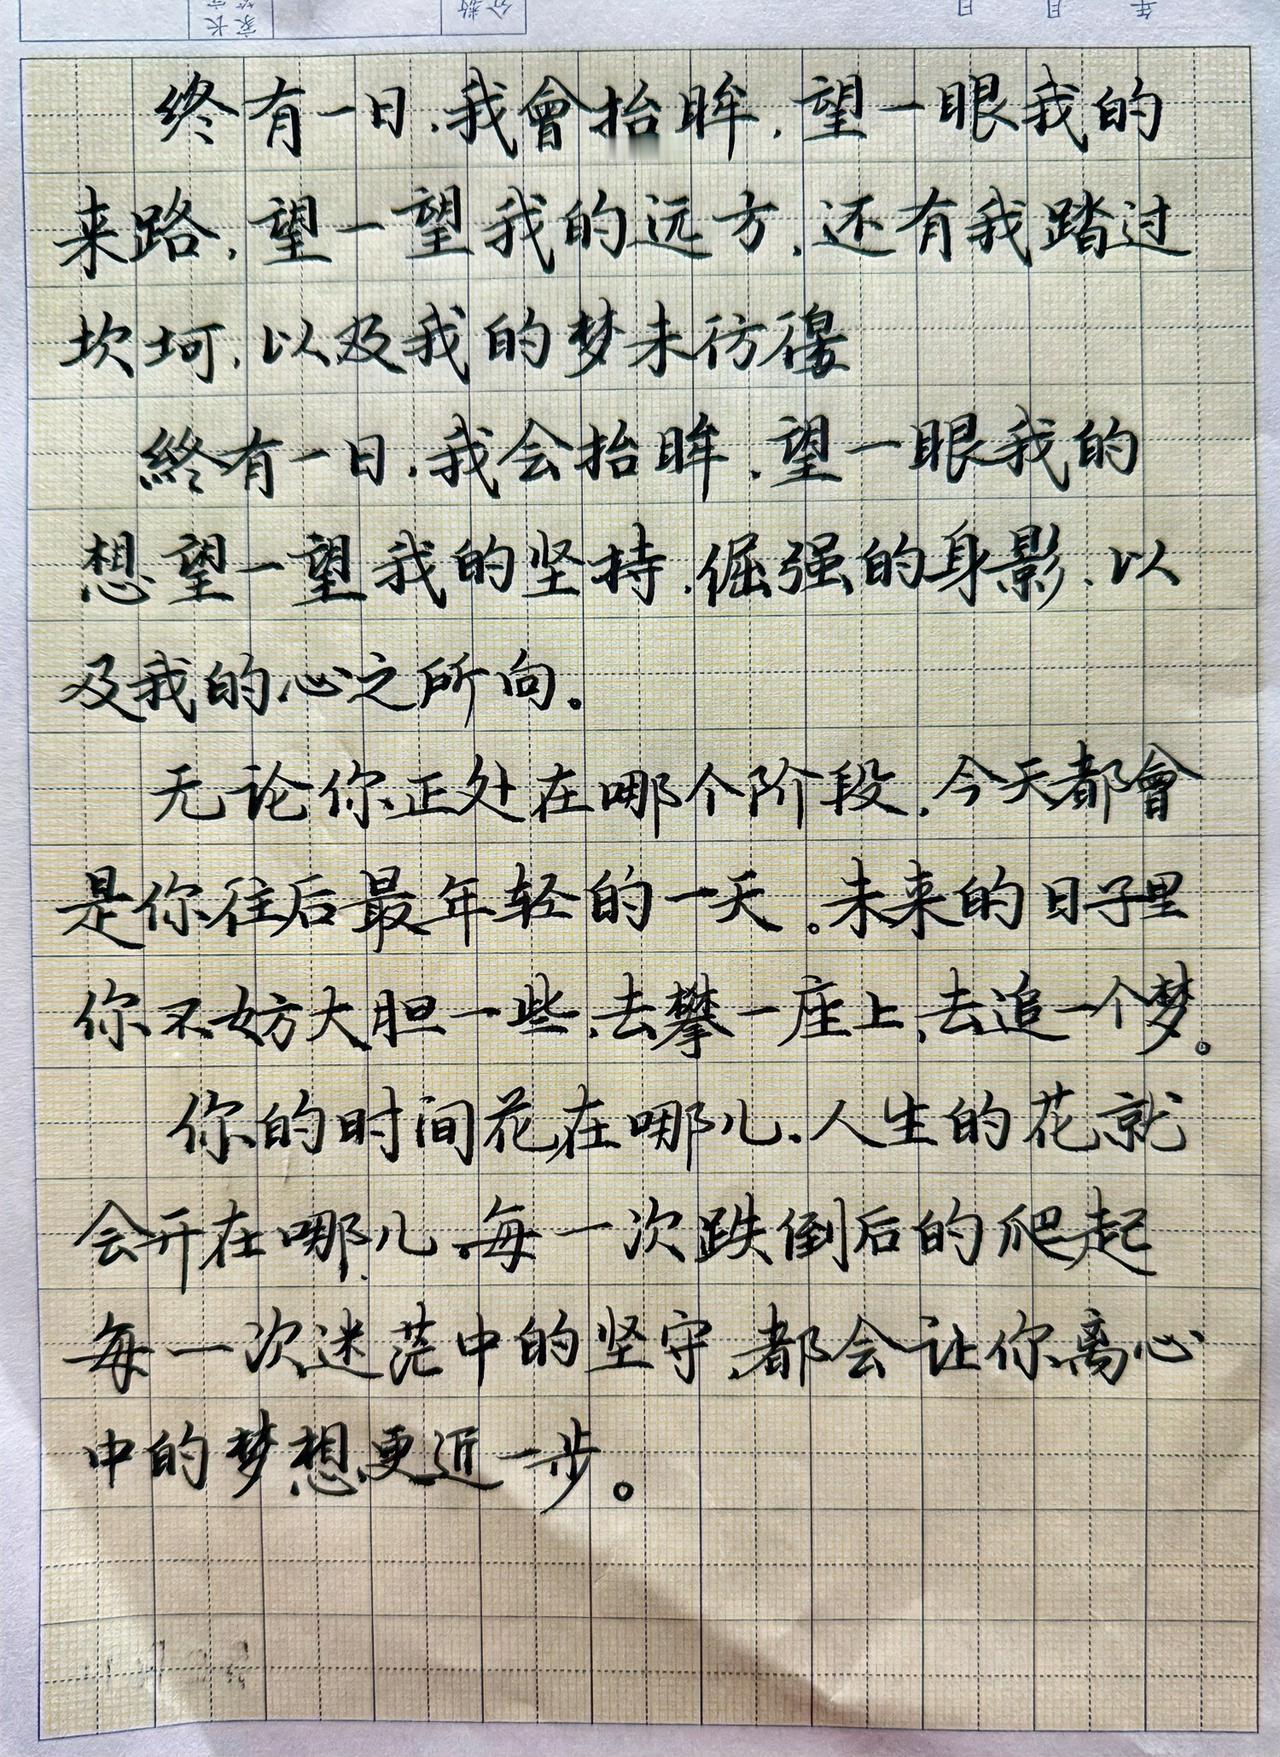 终有一日，我會抬眸，望一眼我的
来路，望一望我的远方，还有我踏过
坎坷，以及我的梦未彷徨
終有一日，我会抬眸，望一眼我的
想望一望我的坚持，倔强的身影、以
及我的心之所向。
无论你正处在哪个阶段，今天都會
是你往后最年轻的一天。未来的日子里
你不妨大胆一些，去攀一座上，去追一个梦。
你的时间花在哪儿，人生的花就
会开在哪儿，每一次跌倒后的爬起
每一次迷茫中的坚守，都会让你离心
中的梦想更近一步。
年 月 日
分数